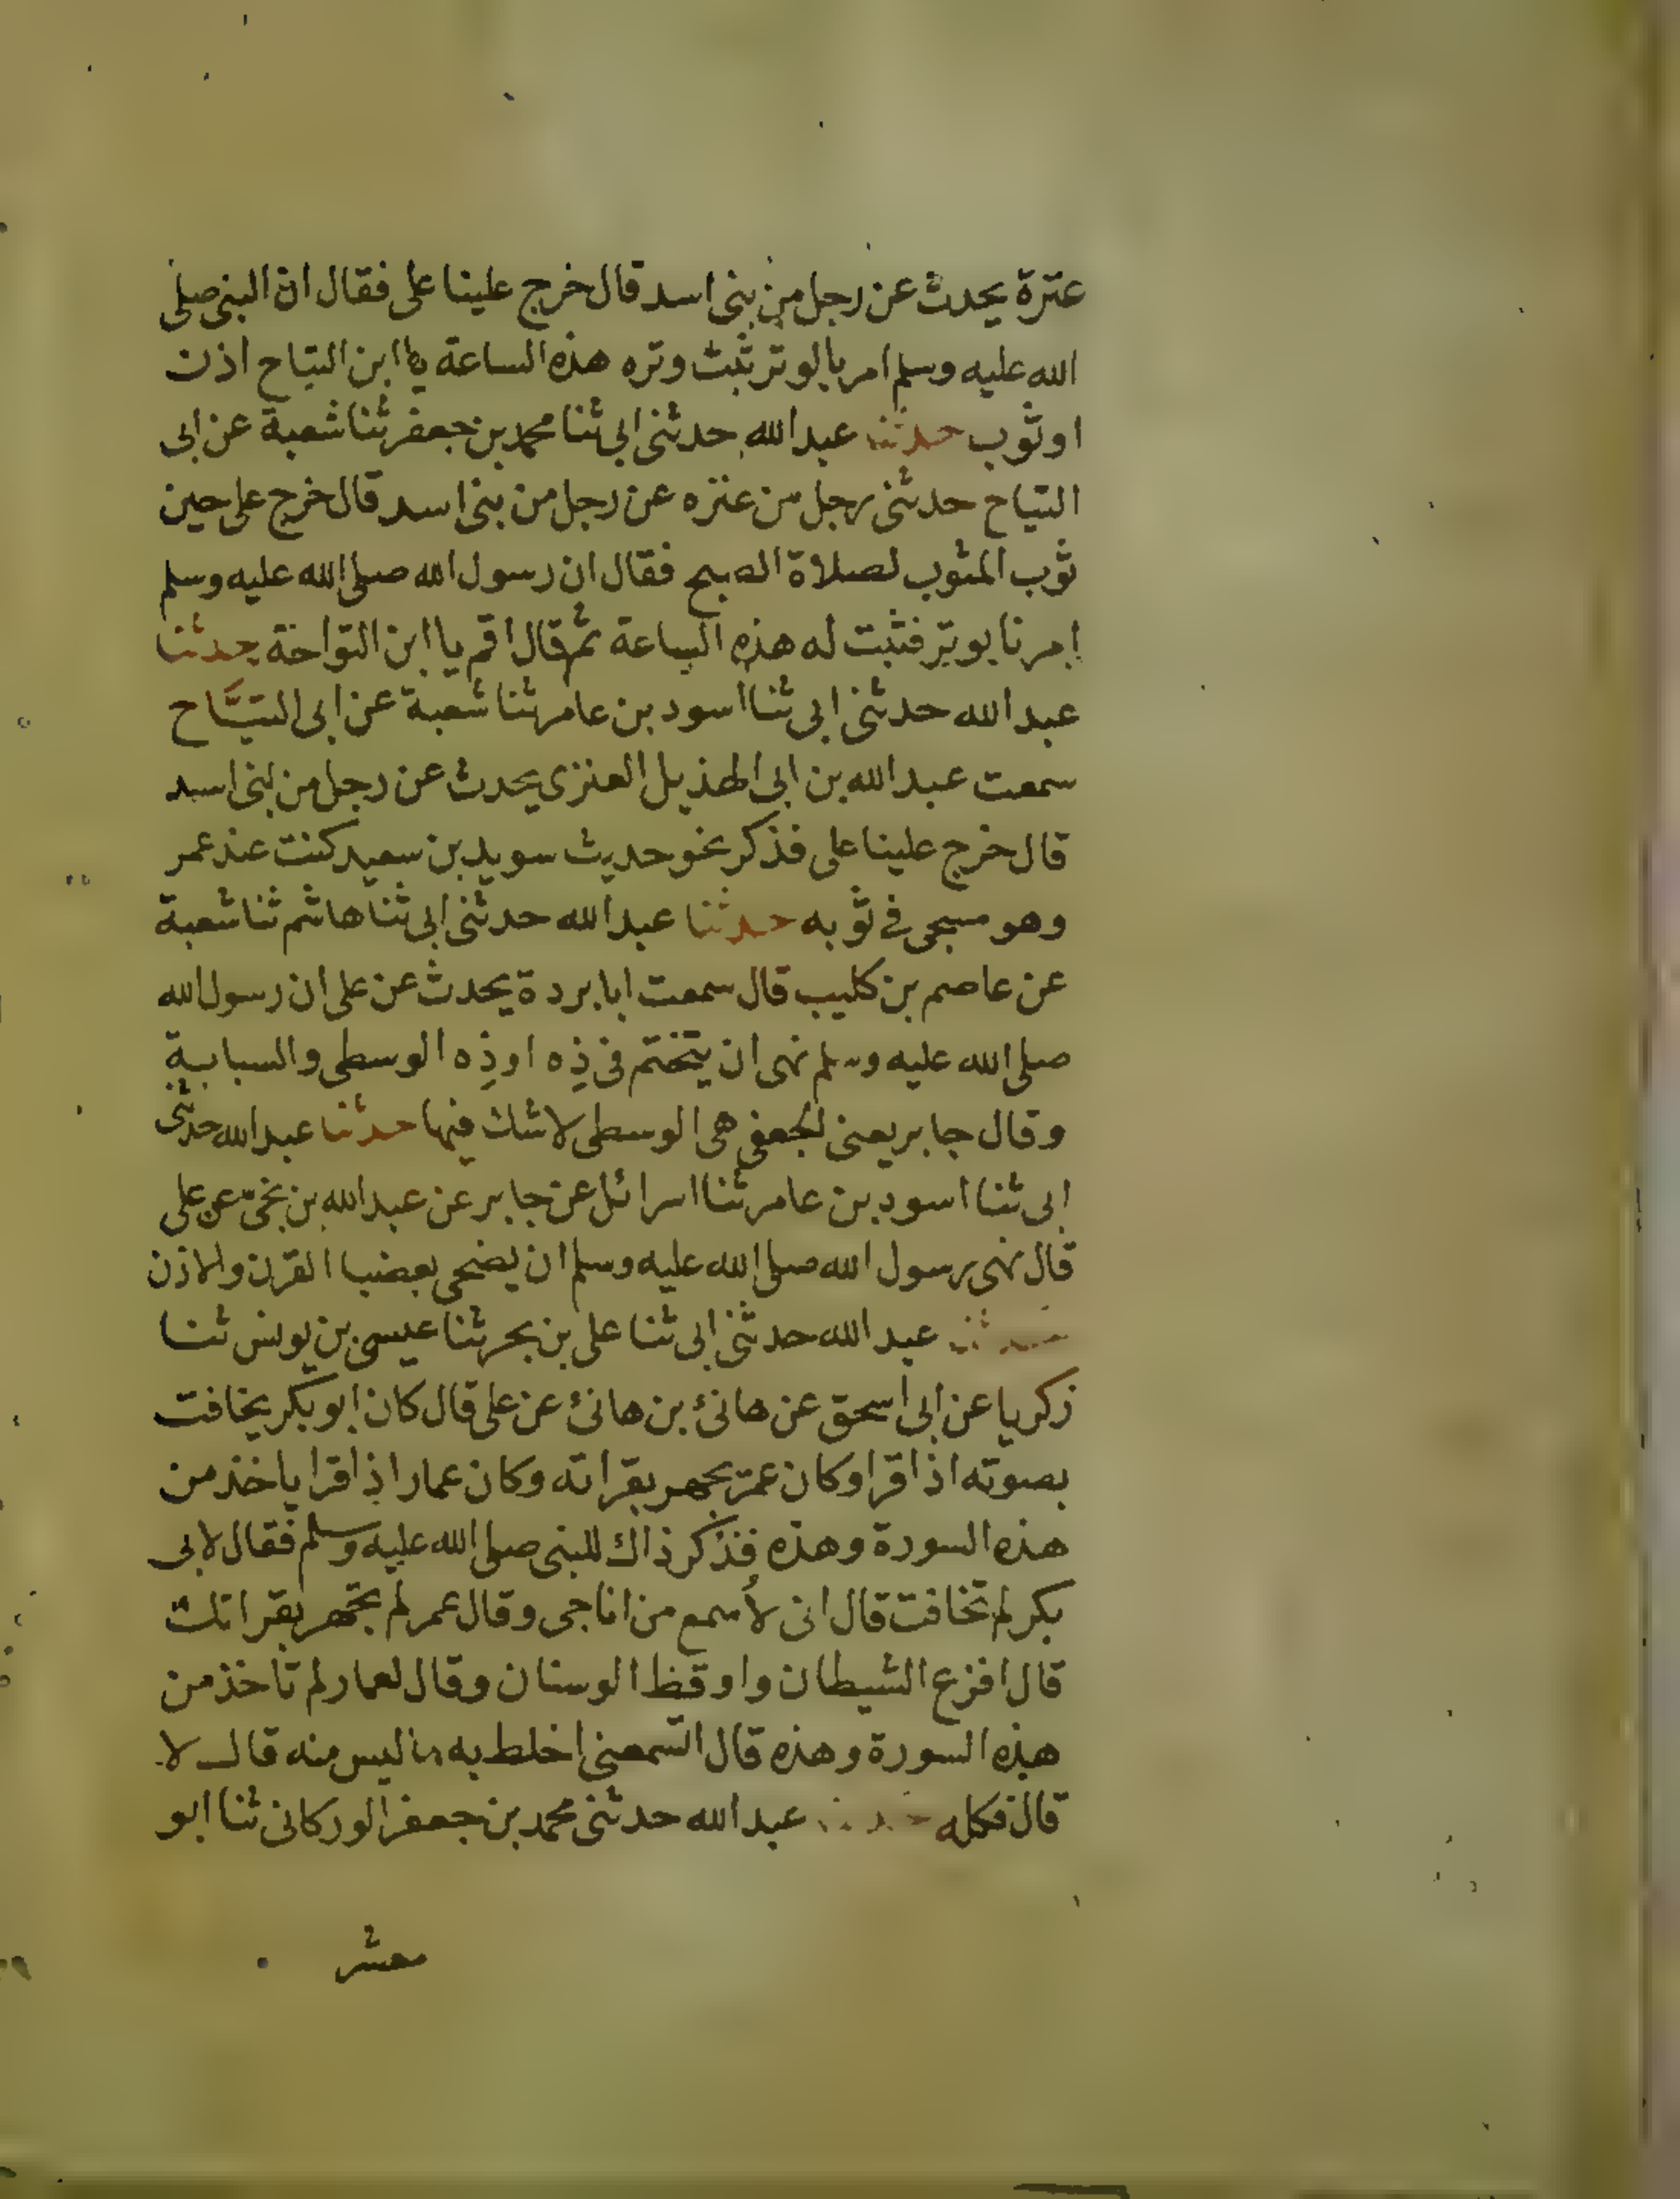 عنزة يحدث عن رجل من بنى اسد قال خرج علينا على فقال ان النبى صلى
الله عليه وسلم امر بالوتر ثبت وتره هذه الساعة يا ابن التياح اذن
او ثوب حدثنا عبد الله حدثنى ابى ثنا محمد بن جعفر ثنا شعبة عن ابى
التياح حدثنى رجل من عنزه عن رجل من بنى اسد قال خرج على حين
ثوب المثوب لصلاة الصبح فقال ان رسول الله صلى الله عليه وسلم
امرنا بوتر فثبت له هذه الساعة ثم قال اقم يا ابن النواحة حدثنا
عبد الله حدثنى ابى ثنا اسود بن عامر ثنا شعبة عن ابى التيَّاح
سمعت عبد الله بن ابى الهذيل العنزى يحدث عن رجل من بنى اسد
قال خرج علينا على فذكر نحو حديث سويد بن سعيد كنت عند عمر
وهو مسجى فى ثوبه حدثنا عبد الله حدثنى ابى ثنا هاشم ثنا شعبة
عن عاصم بن كليب قال سمعت ابا بردة يحدث عن على ان رسول الله
صلى الله عليه وسلم نهى ان يتختم فى ذِه او ذِه الوسطى والسبابة
وقال جابر يعنى الجعفى هى الوسطى لا شك فيها حدثنا عبد الله حدثنى
ابى ثنا اسود بن عامر ثنا اسرائل عن جابر عن عبد الله بن نجىّ عن على
قال نهى رسول الله صلى الله عليه وسلم ان يضحى بعضبا القرن والاذن
حدثنا عبد الله حدثنى ابى ثنا على بن بحر ثنا عيسى بن يونس ثنا
زكريا عن ابى اسحق عن هانئ بن هانئ عن على قال كان ابو بكر يخافت
بصوته اذا قرا وكان عمر يجهر بقراته وكان عمار اذا قرا ياخذ من
هذه السورة وهذه فذكر ذاك للنبى صلى الله عليه وسلم فقال لابى
بكر لم تخافت قال انى لأسمع من اناجى وقال عمر لم تجهر بقراتك
قال افزع الشيطان واوقظ الوسنان وقال لعمار لم تاخذ من
هذه السورة وهذه قال اتسمعنى اخلط به ما ليس منه قال لا
قال فكله حدثنا عبد الله حدثنى محمد بن جعفر الوركانى ثنا ابو
معشر